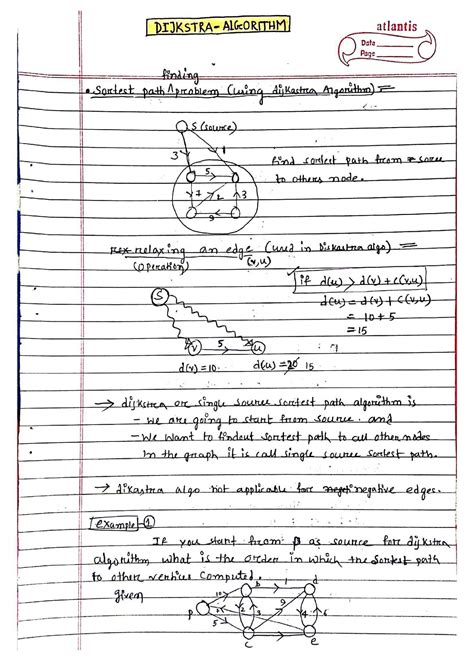 DIJKSTRA-ALGORITHM
atlantis
Date
Page
finding
• Sortest path ^ problem (using dijkastra Algorithm) =
S (source)
3
1
5
7
2
3
9
find sortest path from soree
to others node.
relaxing an edge (used in Diskastra algo) =
(operation)
(v,u)
if d(u) > d(v) + c(v,u)
d(u) = d(v) + c(v,u)
= 10 + 5
= 15
S
v
5
u
d(v) = 10
d(u) = 20 15
→ dijkstra or single source sortest path algorithm is
- we are going to start from source. and
- We want to findout sortest path to all other nodes
in the graph it is call single source sortest path.
→ dikastra algo not applicable fore negative edges.
Example - 1
If you start from p as source fore dijkstra
algorithm what is the order in which the sortest path
to other vertices computed.
given
b
1
d
10
p
2
3
9
4
6
5
c
e